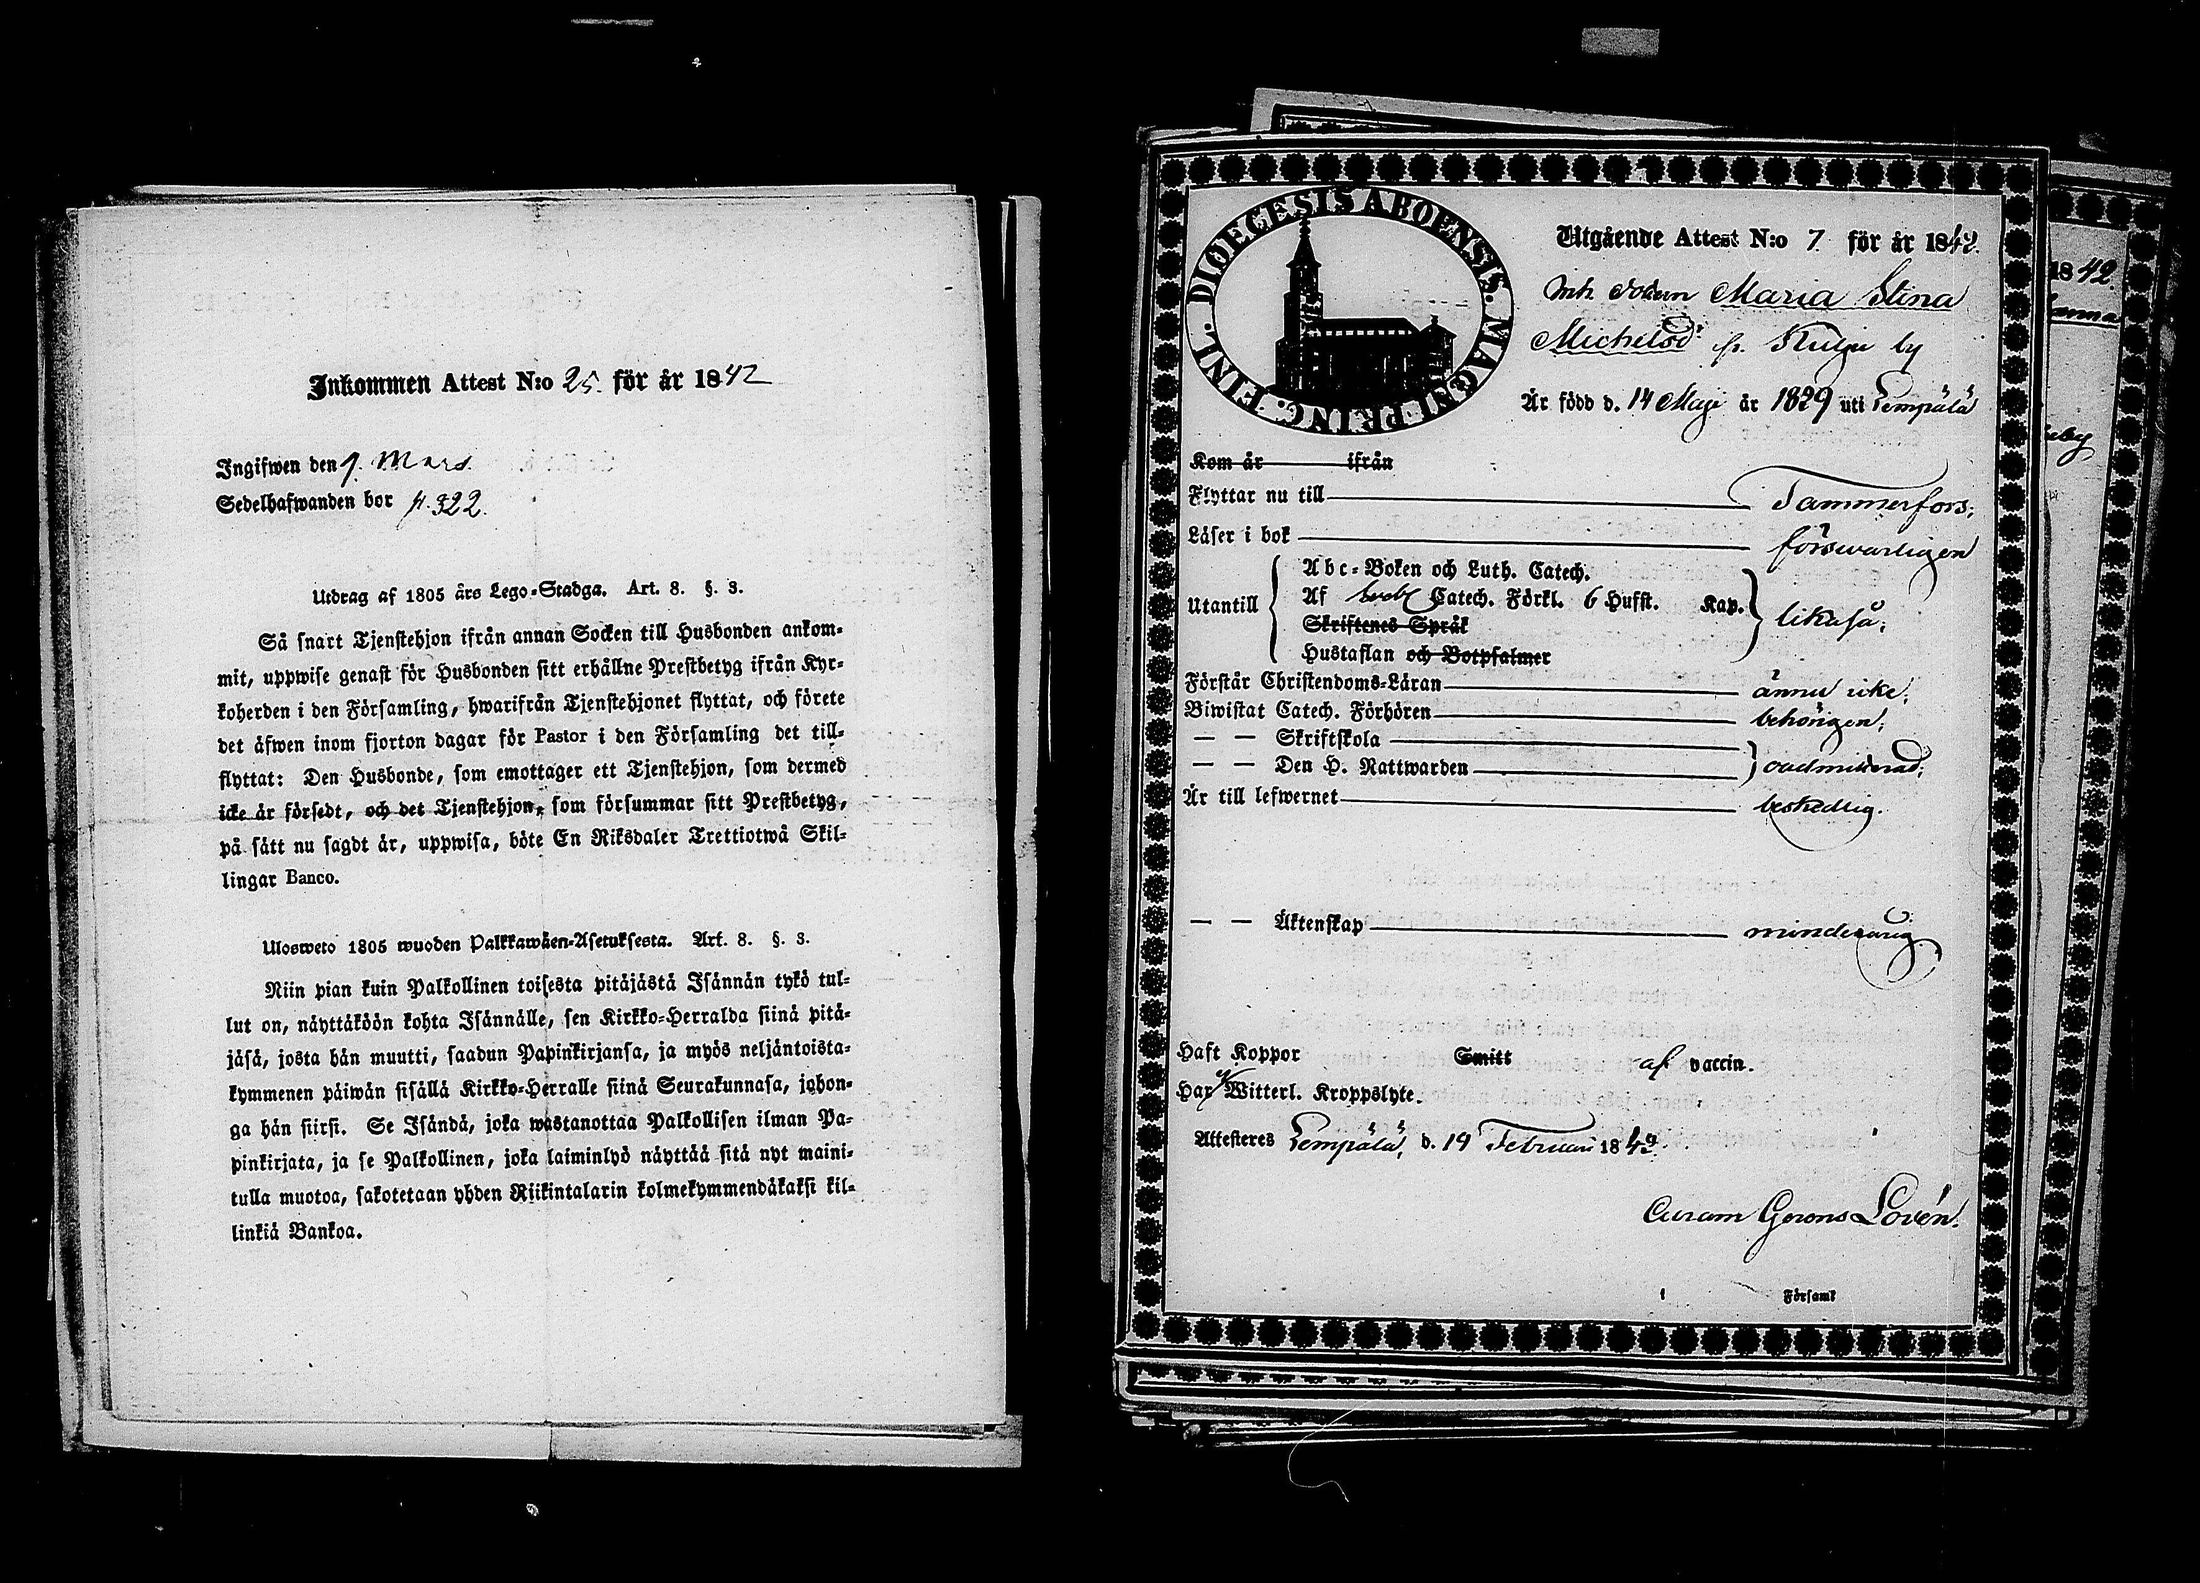 Inkommen Attest N:o 25. för år 1842
Ingifwen den 9. Mars.
Sedelhafwanden bor p. 322.
Utdrag af 1805 års Lego-Stadga. Art. 8. §. 3.
Så snart Tjenstehjon ifrån annan Socken till Husbonden ankom-
mit, uppwise genast för Husbonden sitt erhållne Prestbetyg ifrån Kyr-
koherden i den Församling, hwarifrån Tjenstehjonet flyttat, och förete
det äfwen inom fjorton dagar för Pastor i den Församling det till-
flyttat: Den Husbonde, som emottager ett Tjenstehjon, som dermed
icke är försedt, och det Tjenstehjon, som försummar sitt Prestbetyg,
på sätt nu sagdt är, uppwisa, böte En Riksdaler Trettiotwå Skil-
lingar Banco.
Ulosweto 1805 wuoden Palkkawäen-Asetuksesta. Art. 8. §. 3.
Niin pian kuin Palkollinen toisesta pitäjästä Isännän tykö tul-
lut on, näyttäköön kohta Isännälle, sen Kirkko-Herralda siinä pitä-
jäsä, josta hän muutti, saadun Papinkirjansa, ja myös neljäntoista-
kymmenen päiwän sisällä Kirkko-Herralle siinä Seurakunnasa, johon-
ga hän siirsi. Se Isändä, joka wastanottaa Palkollisen ilman Pa-
pinkirjata, ja se Palkollinen, joka laiminlyö näyttää sitä nyt maini-
tulla muotoa, sakotetaan yhden Riikintalarin kolmekymmendäkaksi kil-
linkiä Bankoa.
DIOECESIS ABOENSIS. MAGNI PRINC. FINL.
Utgående Attest N:o 7. för år 1842.
Maria Stina
Michelsd:r fr. Kulju by
Är född d. 14 Maji år 1829 uti Lempälä
Kom år ifrån
Flyttar nu till Tammerfors;
Läser i bok förswarligen
Utantill
Abc-Boken och Luth. Catech.
Af Catech. Förkl. 6 Hufst. Kap.
Skriftenes Språk
likaså;
Hustaflan och Botpsalmer
Förstår Christendoms-Läran ännu icke;
Biwistat Catech. Förhören behörigen;
— — Skriftskola
— — Den H. Nattwarden oadmitterad;
Är till lefwernet beskedlig.
— — Äktenskap minderårig.
Haft Koppor Smitt af vaccin.
Har ej Witterl. Kroppslyte.
Attesteres Lempälä, d. 19 Februari 1842.
Curam Gerens Lovén.
Församl
1842